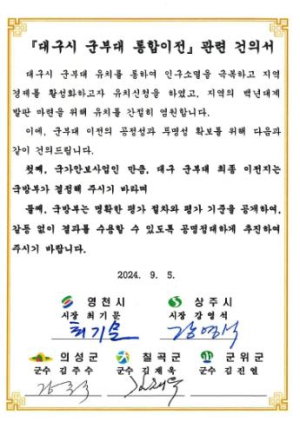 『대구시 군부대 통합이전』 관련 건의서
대구시 군부대 유치를 통하여 인구소멸을 극복하고 지역
경제를 활성화하고자 유치신청을 하였고, 지역의 백년대계
발판 마련을 위해 유치를 간절히 염원합니다.
이에, 군부대 이전의 공정성과 투명성 확보를 위해 다음과
같이 건의드립니다.
첫째, 국가안보사업인 만큼, 대구 군부대 최종 이전지는
국방부가 결정해 주시기 바라며
둘째, 국방부는 명확한 평가 절차와 평가 기준을 공개하여,
갈등 없이 결과를 수용할 수 있도록 공명정대하게 추진하여
주시기 바랍니다.
2024. 9. 5.
영천시 상주시
시장 최기문 시장 강영석
최기문 강영석
의성군 칠곡군 군위군
군수 김주수 군수 김재욱 군수 김진열